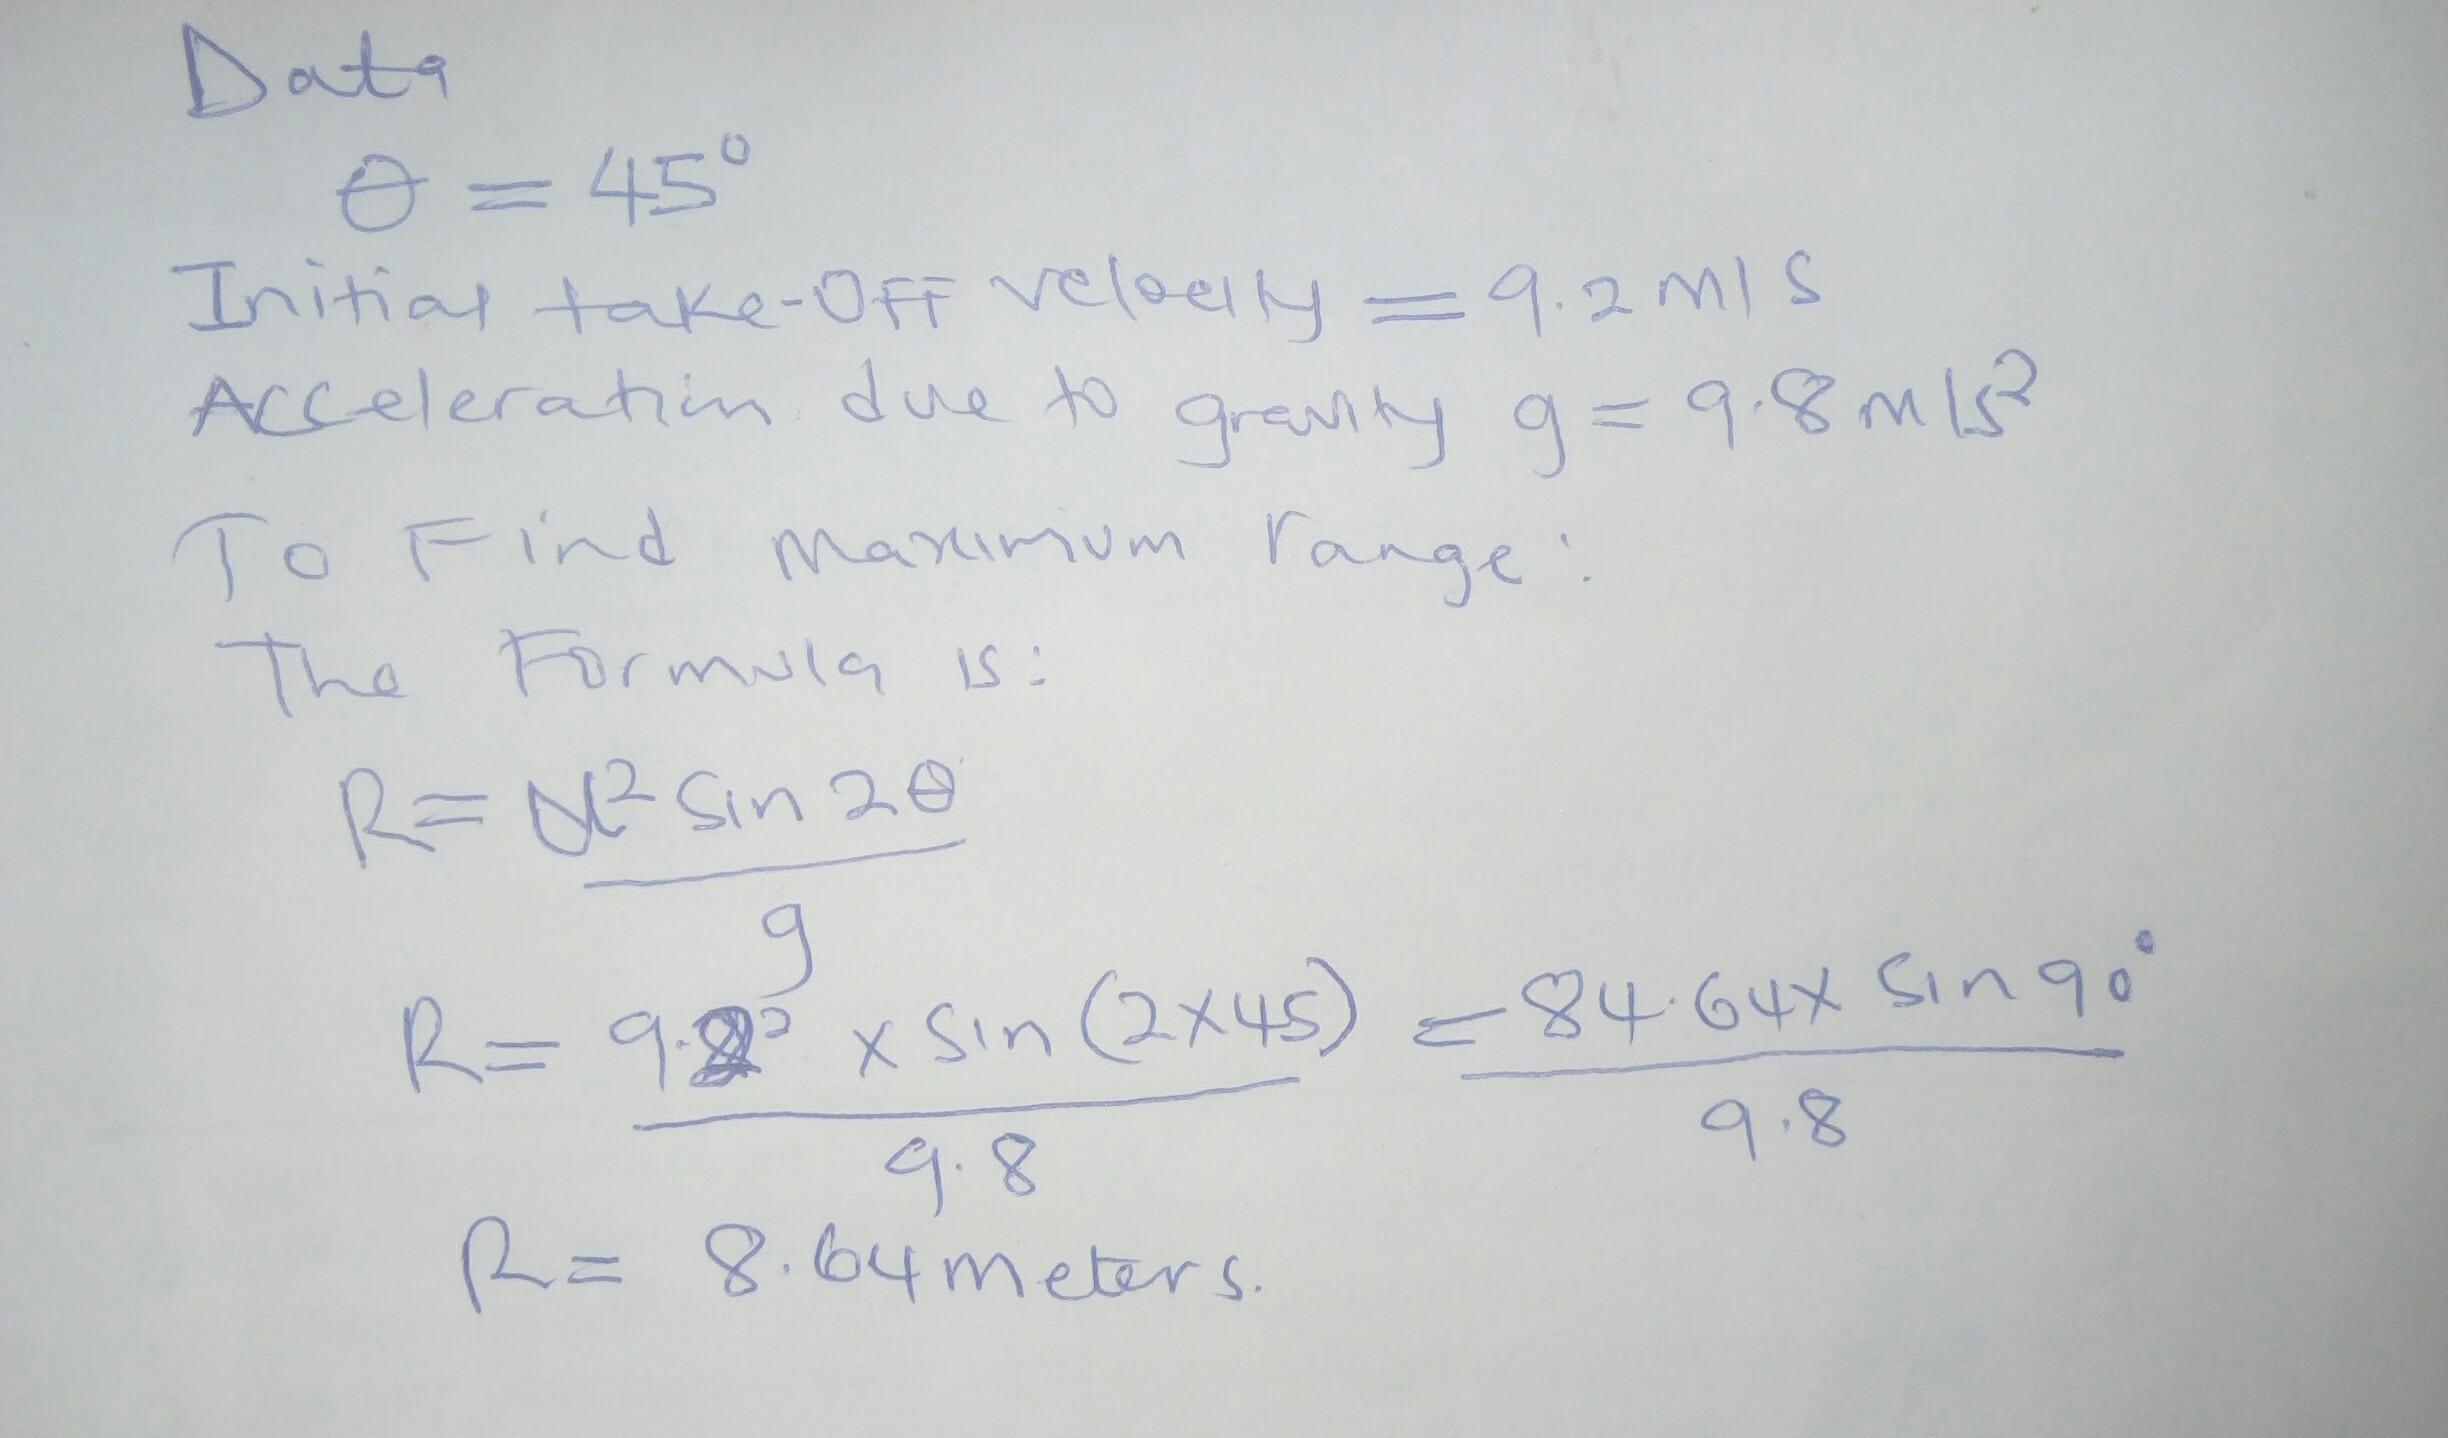 Data
θ = 45°
Initial take-off velocity = 9.2 m/s
Acceleration due to gravity g = 9.8 m/s²
To Find maximum range:
The Formula is:
R = U² Sin 2θ
g
R = 9.2² x Sin (2x45) = 84.64 x Sin 90°
9.8 9.8
R = 8.64 meters.